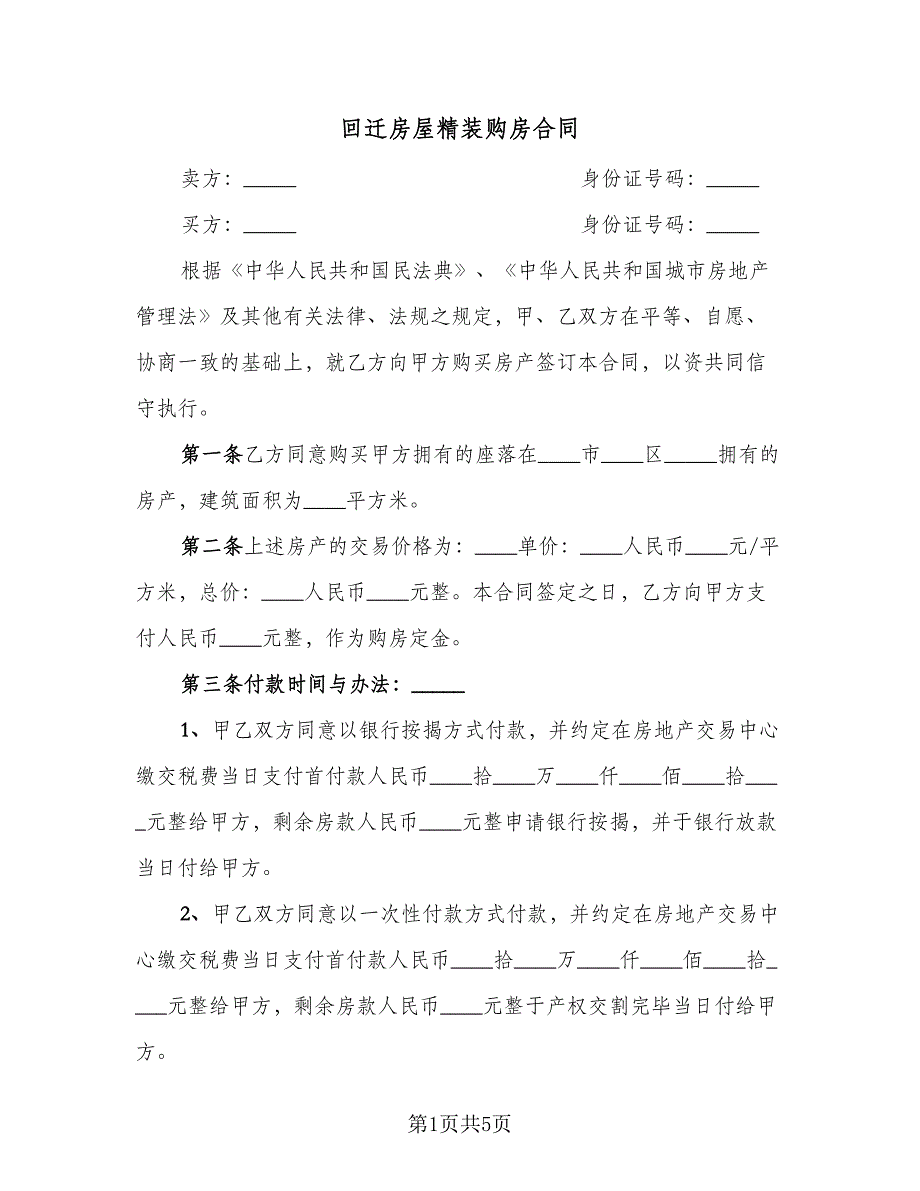 回迁房屋精装购房合同
卖方：_____ 身份证号码：_____
买方：_____ 身份证号码：_____
根据《中华人民共和国民法典》、《中华人民共和国城市房地产
管理法》及其他有关法律、法规之规定，甲、乙双方在平等、自愿、
协商一致的基础上，就乙方向甲方购买房产签订本合同，以资共同信
守执行。
第一条乙方同意购买甲方拥有的座落在____市____区_____拥有的
房产，建筑面积为____平方米。
第二条上述房产的交易价格为：____单价：____人民币____元/平
方米，总价：____人民币____元整。本合同签定之日，乙方向甲方支
付人民币____元整，作为购房定金。
第三条付款时间与办法：_____
1、甲乙双方同意以银行按揭方式付款，并约定在房地产交易中心
缴交税费当日支付首付款人民币____拾____万____仟____佰____拾___
_元整给甲方，剩余房款人民币____元整申请银行按揭，并于银行放款
当日付给甲方。
2、甲乙双方同意以一次性付款方式付款，并约定在房地产交易中
心缴交税费当日支付首付款人民币____拾____万____仟____佰____拾_
___元整给甲方，剩余房款人民币____元整于产权交割完毕当日付给甲
方。
第1页共5页